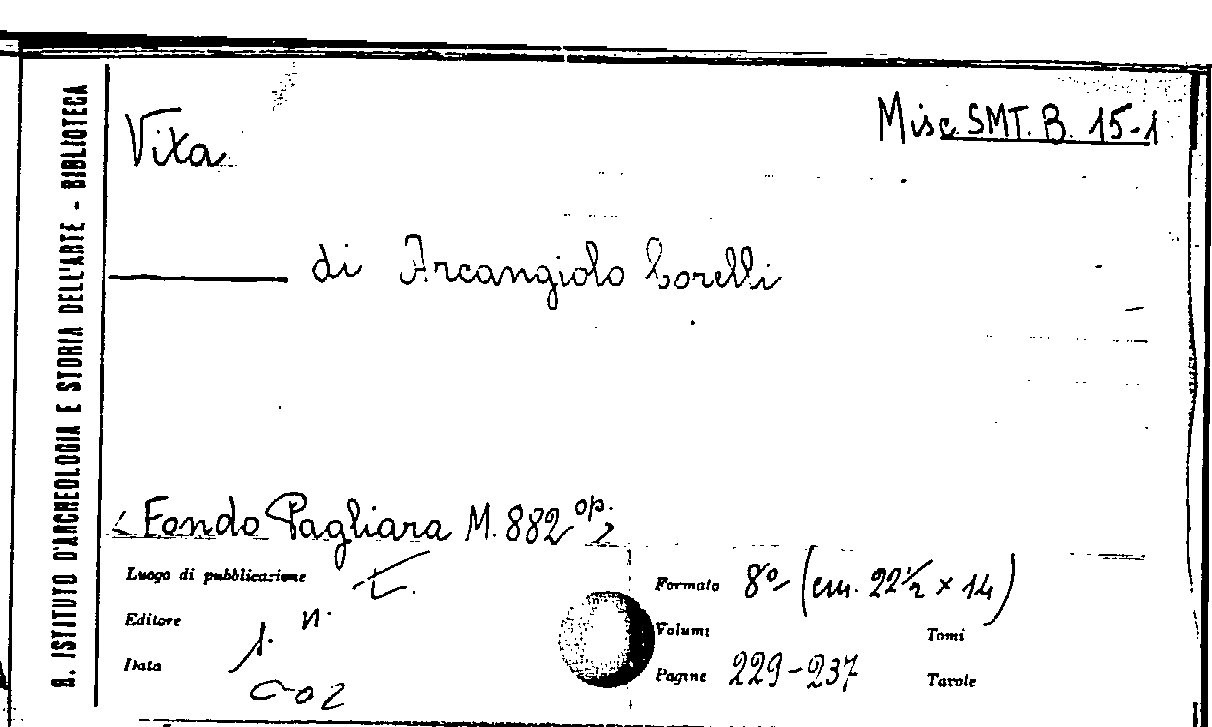 R. ISTITUTO D'ARCHEOLOGIA E STORIA DELL'ARTE - BIBLIOTECA
Misc. SMT. B. 15-1
Vita
di Arcangiolo Corelli
< Fondo Pagliara M. 882 op. >
Luogo di pubblicazione
Editore
n.
Data
Formato 8º (cm. 22½ × 14)
Volumi
Tomi
Pagine 229-237
Tavole